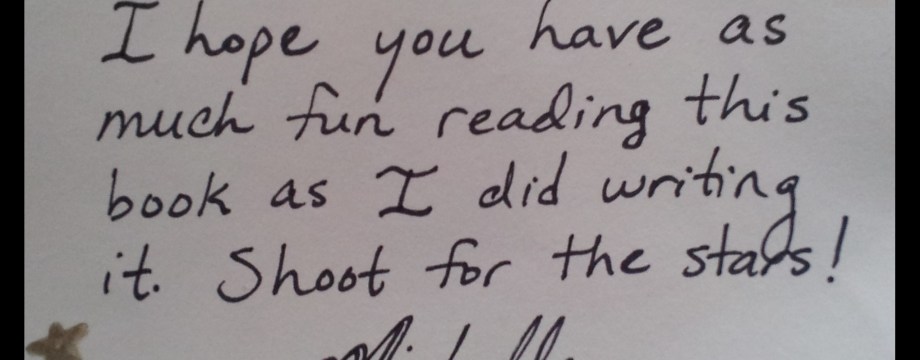 I hope you have as
much fun reading this
book as I did writing
it. Shoot for the stars!